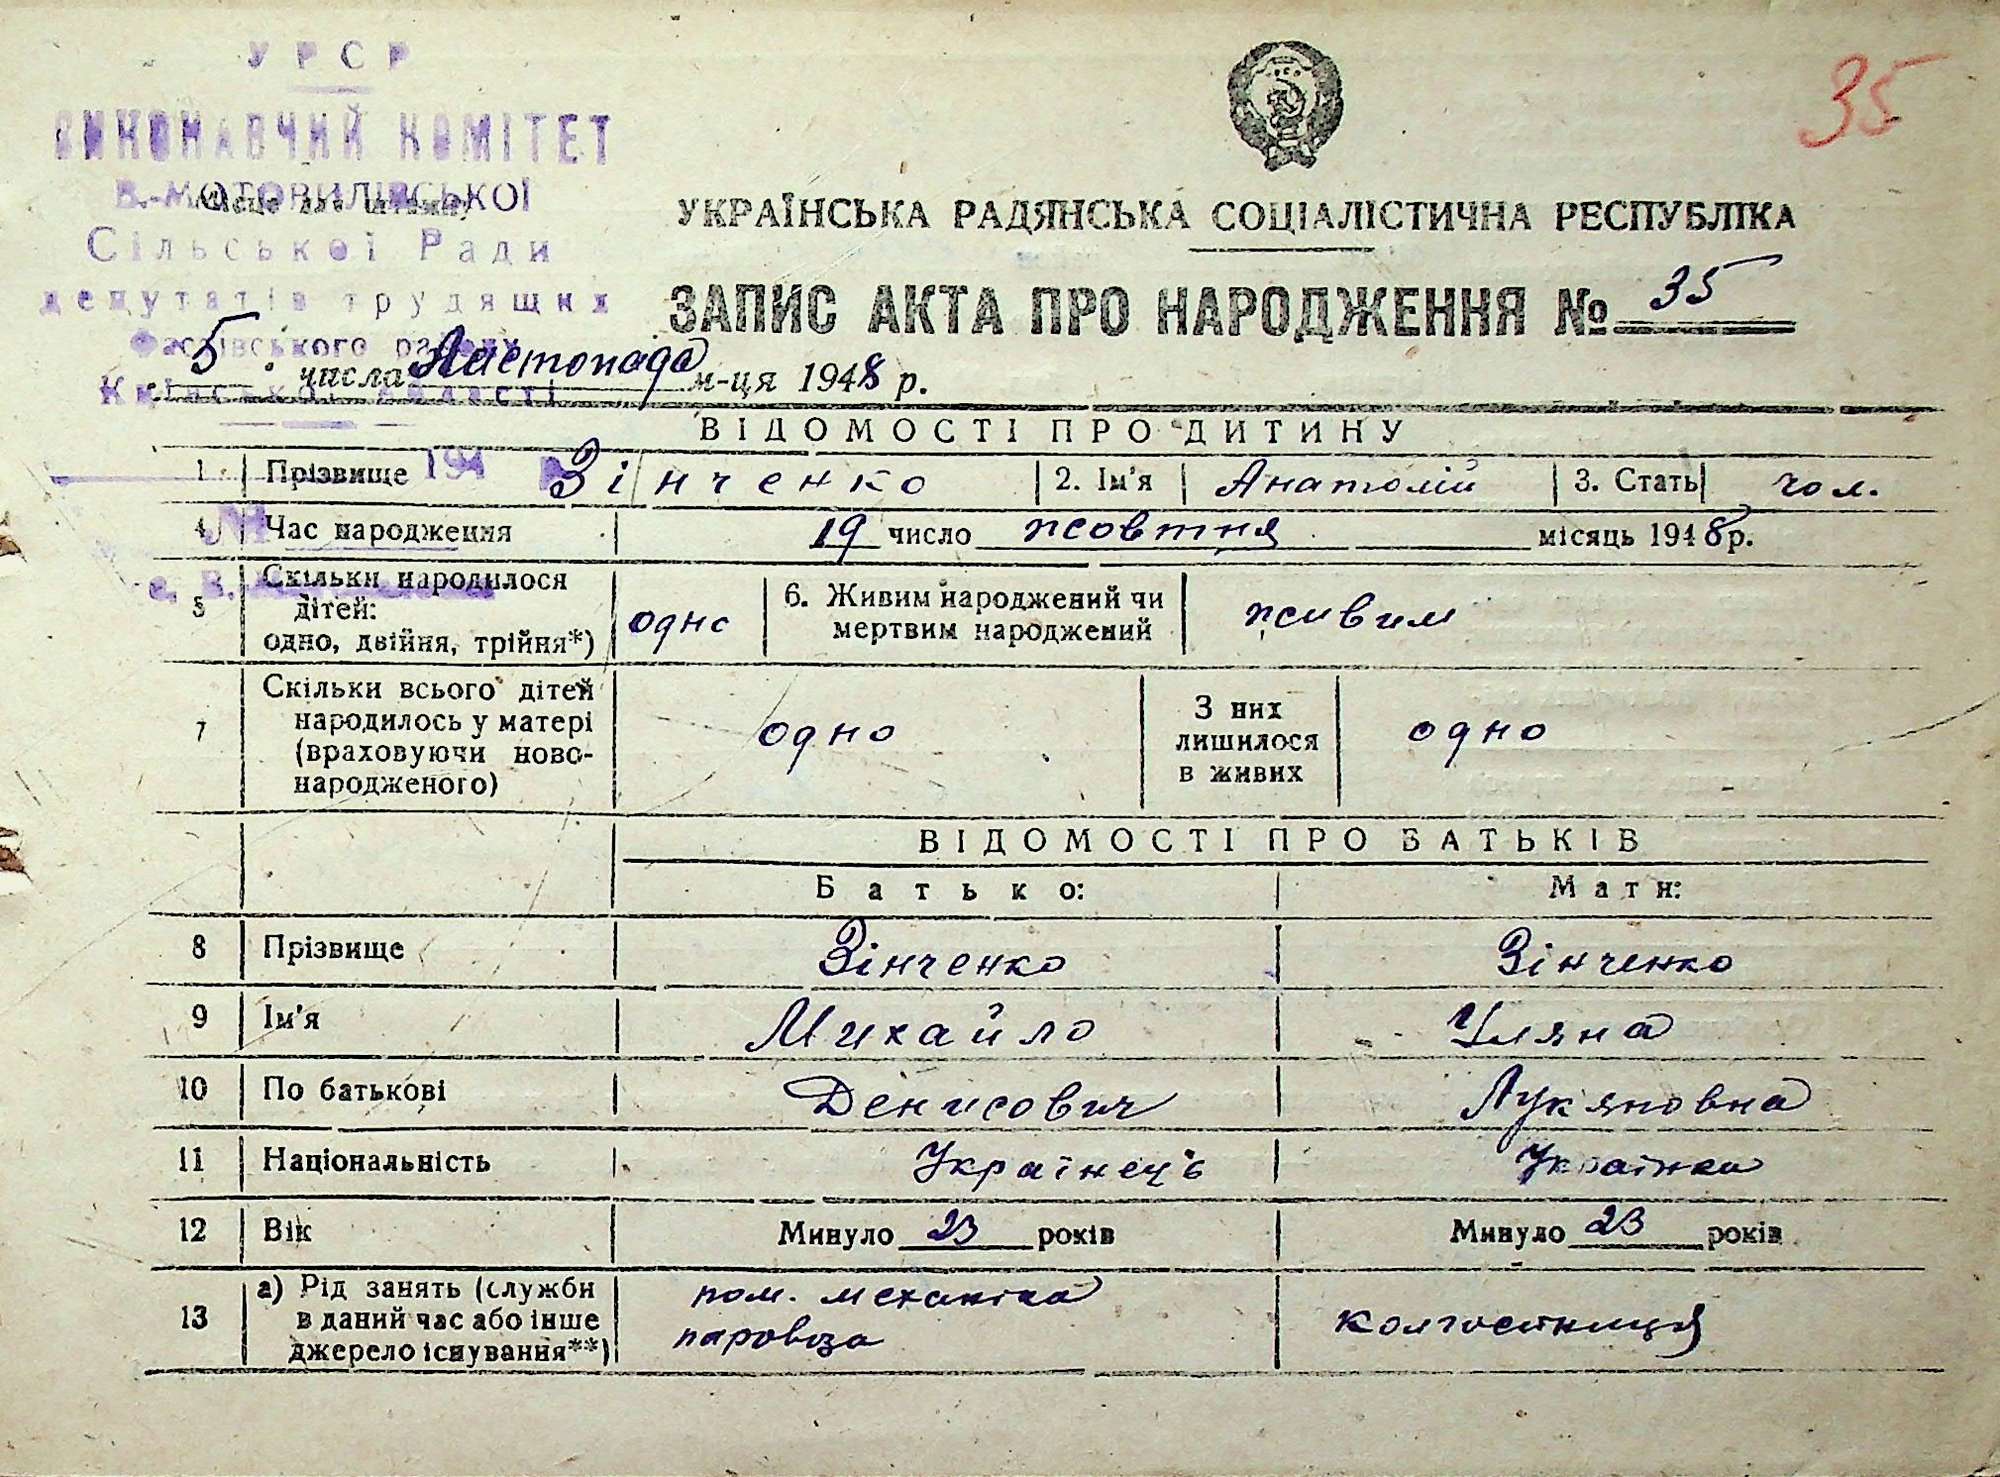 УРСР
ВИКОНАВЧИЙ КОМІТЕТ
В.-МОТОВИЛІВСЬКОЇ
Сільської Ради
депутатів трудящих
Фастівського району
Київської області
194
№
с. В.
35
УКРАЇНСЬКА РАДЯНСЬКА СОЦІАЛІСТИЧНА РЕСПУБЛІКА
ЗАПИС АКТА ПРО НАРОДЖЕННЯ № 35
5 числа Листопада м-ця 1948 р.
ВІДОМОСТІ ПРО ДИТИНУ
1 Прізвище Зінченко 2. Ім'я Анатолій 3. Стать чол.
4 Час народження 19 число жовтня місяць 1948 р.
5 Скільки народилося дітей: одно, двійня, трійня*) одно 6. Живим народжений чи мертвим народжений живим
7 Скільки всього дітей народилось у матері (враховуючи ново-народженого) одно З них лишилося в живих одно
ВІДОМОСТІ ПРО БАТЬКІВ
Батько: Мати:
8 Прізвище Зінченко Зінченко
9 Ім'я Михайло Уляна
10 По батькові Денисович Лукяновна
11 Національність Українець Українка
12 Вік Минуло 23 років Минуло 23 років
13 а) Рід занять (служби в даний час або інше джерело існування**) пом. механіка паровоза колгостниця